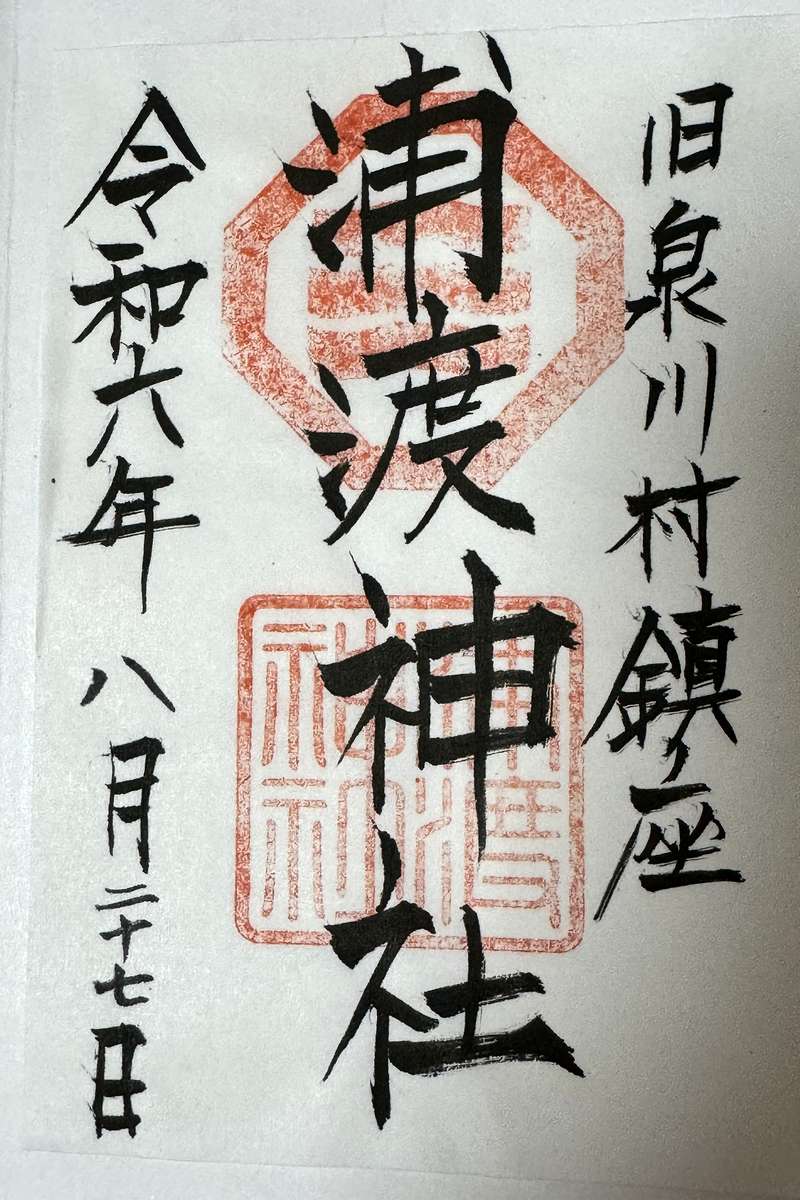 旧泉川村鎮座
浦渡神社
令和六年八月二十七日